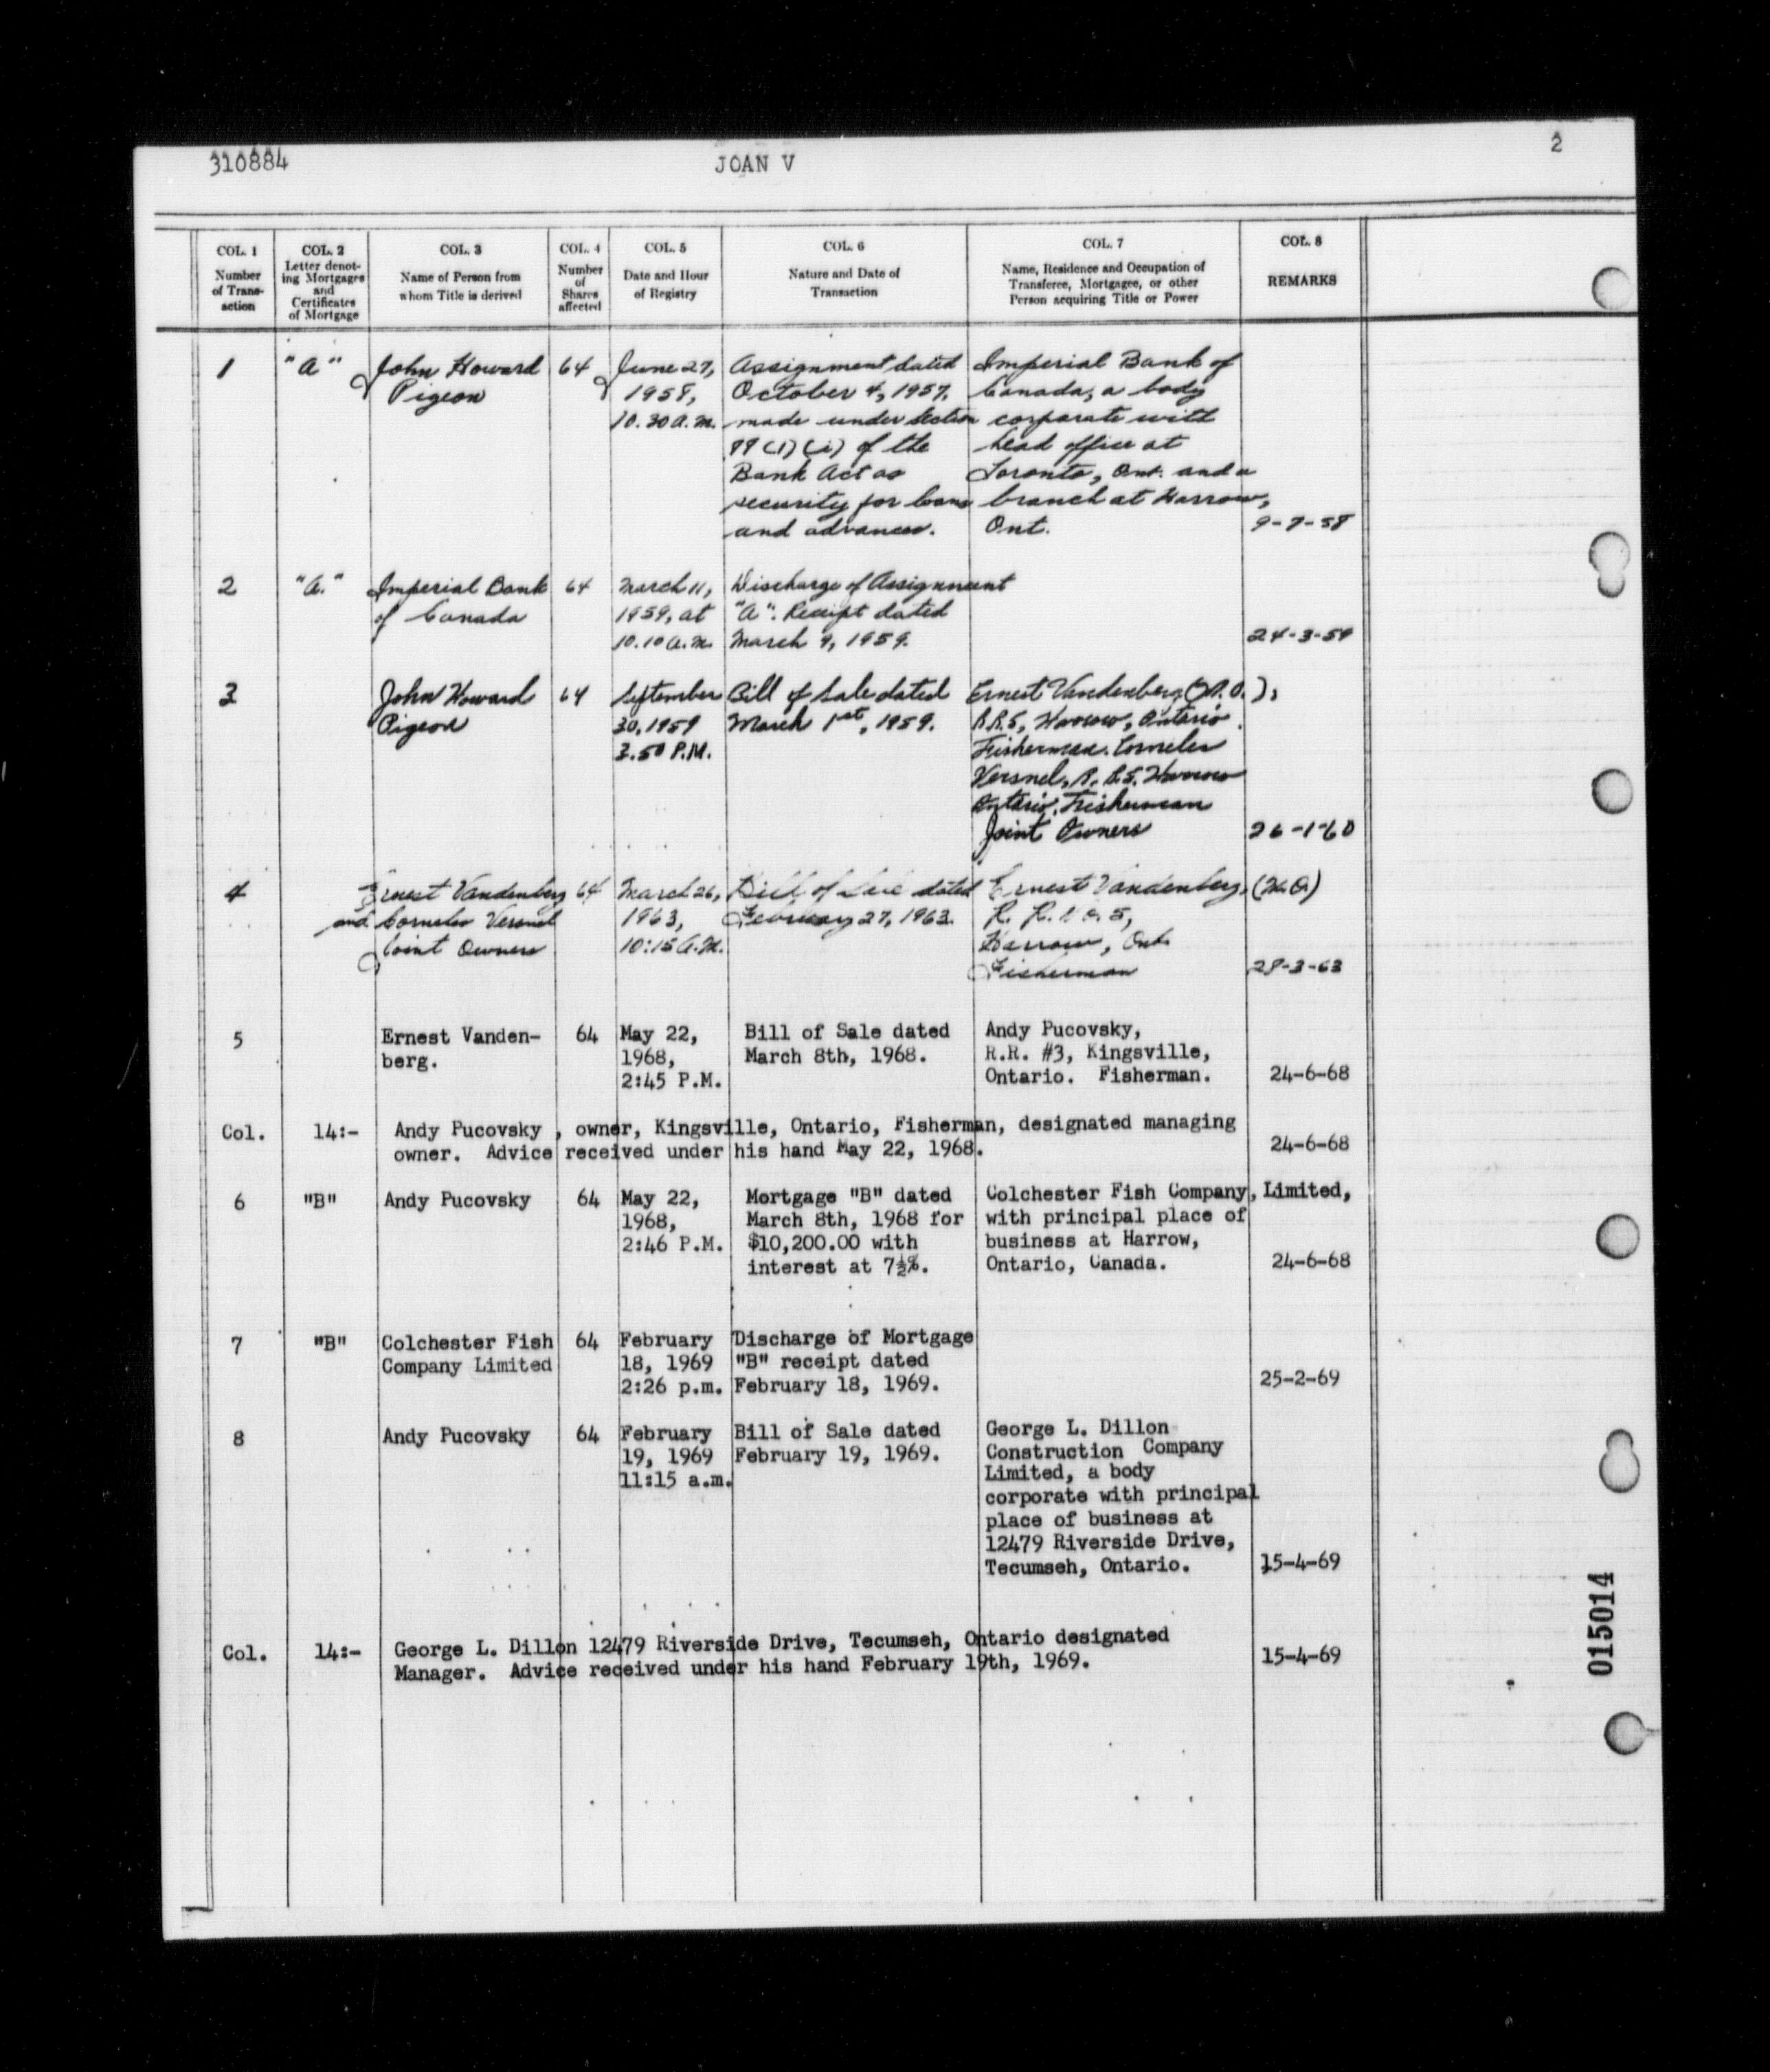 310884 JOAN V 2
COL. 1 COL. 2 COL. 3 COL. 4 COL. 5 COL. 6 COL. 7 COL. 8
Number of Trans-action
Letter denot-ing Mortgages and Certificates of Mortgage
Name of Person from whom Title is derived
Number of Shares affected
Date and Hour of Registry
Nature and Date of Transaction
Name, Residence and Occupation of Transferee, Mortgagee, or other Person acquiring Title or Power
REMARKS
1 "A" John Howard 64 June 27, Assignment dated Imperial Bank of
Pigeon 1958, October 4, 1957, Canada, a body
10.30 A.M. made under Section corporate with
(1) (i) of the head office at
Bank Act as Toronto, Ont. and a
security for loans branch at Harrow,
and advances. Ont. 9-7-58
2 "A." Imperial Bank 64 March 11, Discharge of Assignment
of Canada 1959, at "A". Receipt dated
10.10 A.M. March 9, 1959. 24-3-59
3 John Howard 64 September Bill of Sale dated Ernest Vandenberg (M.O.),
Pigeon 30, 1959 March 1st, 1959. R.R.5, Harrow, Ontario.
3.50 P.M. Fisherman. Cornelis
Versnel, R. R.5. Harrow
Ontario. Fisherman
Joint Owners 26-1-60
4 Ernest Vandenberg 64 March 26, Bill of Sale dated Ernest Vandenberg, (M.O.)
and Cornelis Versnel 1963, February 27, 1963. R. R. No. 5,
Joint Owners 10:15 A.M. Harrow, Ont.
Fisherman 28-3-63
5 Ernest Vanden- 64 May 22, Bill of Sale dated Andy Pucovsky,
berg. 1968, March 8th, 1968. R.R. #3, Kingsville,
2:45 P.M. Ontario. Fisherman. 24-6-68
Col. 14:- Andy Pucovsky , owner, Kingsville, Ontario, Fisherman, designated managing
owner. Advice received under his hand May 22, 1968. 24-6-68
6 "B" Andy Pucovsky 64 May 22, Mortgage "B" dated Colchester Fish Company, Limited,
1968, March 8th, 1968 for with principal place of
2:46 P.M. $10,200.00 with business at Harrow,
interest at 7½%. Ontario, Canada. 24-6-68
7 "B" Colchester Fish 64 February Discharge of Mortgage
Company Limited 18, 1969 "B" receipt dated
2:26 p.m. February 18, 1969. 25-2-69
8 Andy Pucovsky 64 February Bill of Sale dated George L. Dillon
19, 1969 February 19, 1969. Construction Company
11:15 a.m. Limited, a body
corporate with principal
place of business at
12479 Riverside Drive,
Tecumseh, Ontario. 15-4-69
Col. 14:- George L. Dillon 12479 Riverside Drive, Tecumseh, Ontario designated
Manager. Advice received under his hand February 19th, 1969. 15-4-69
015014